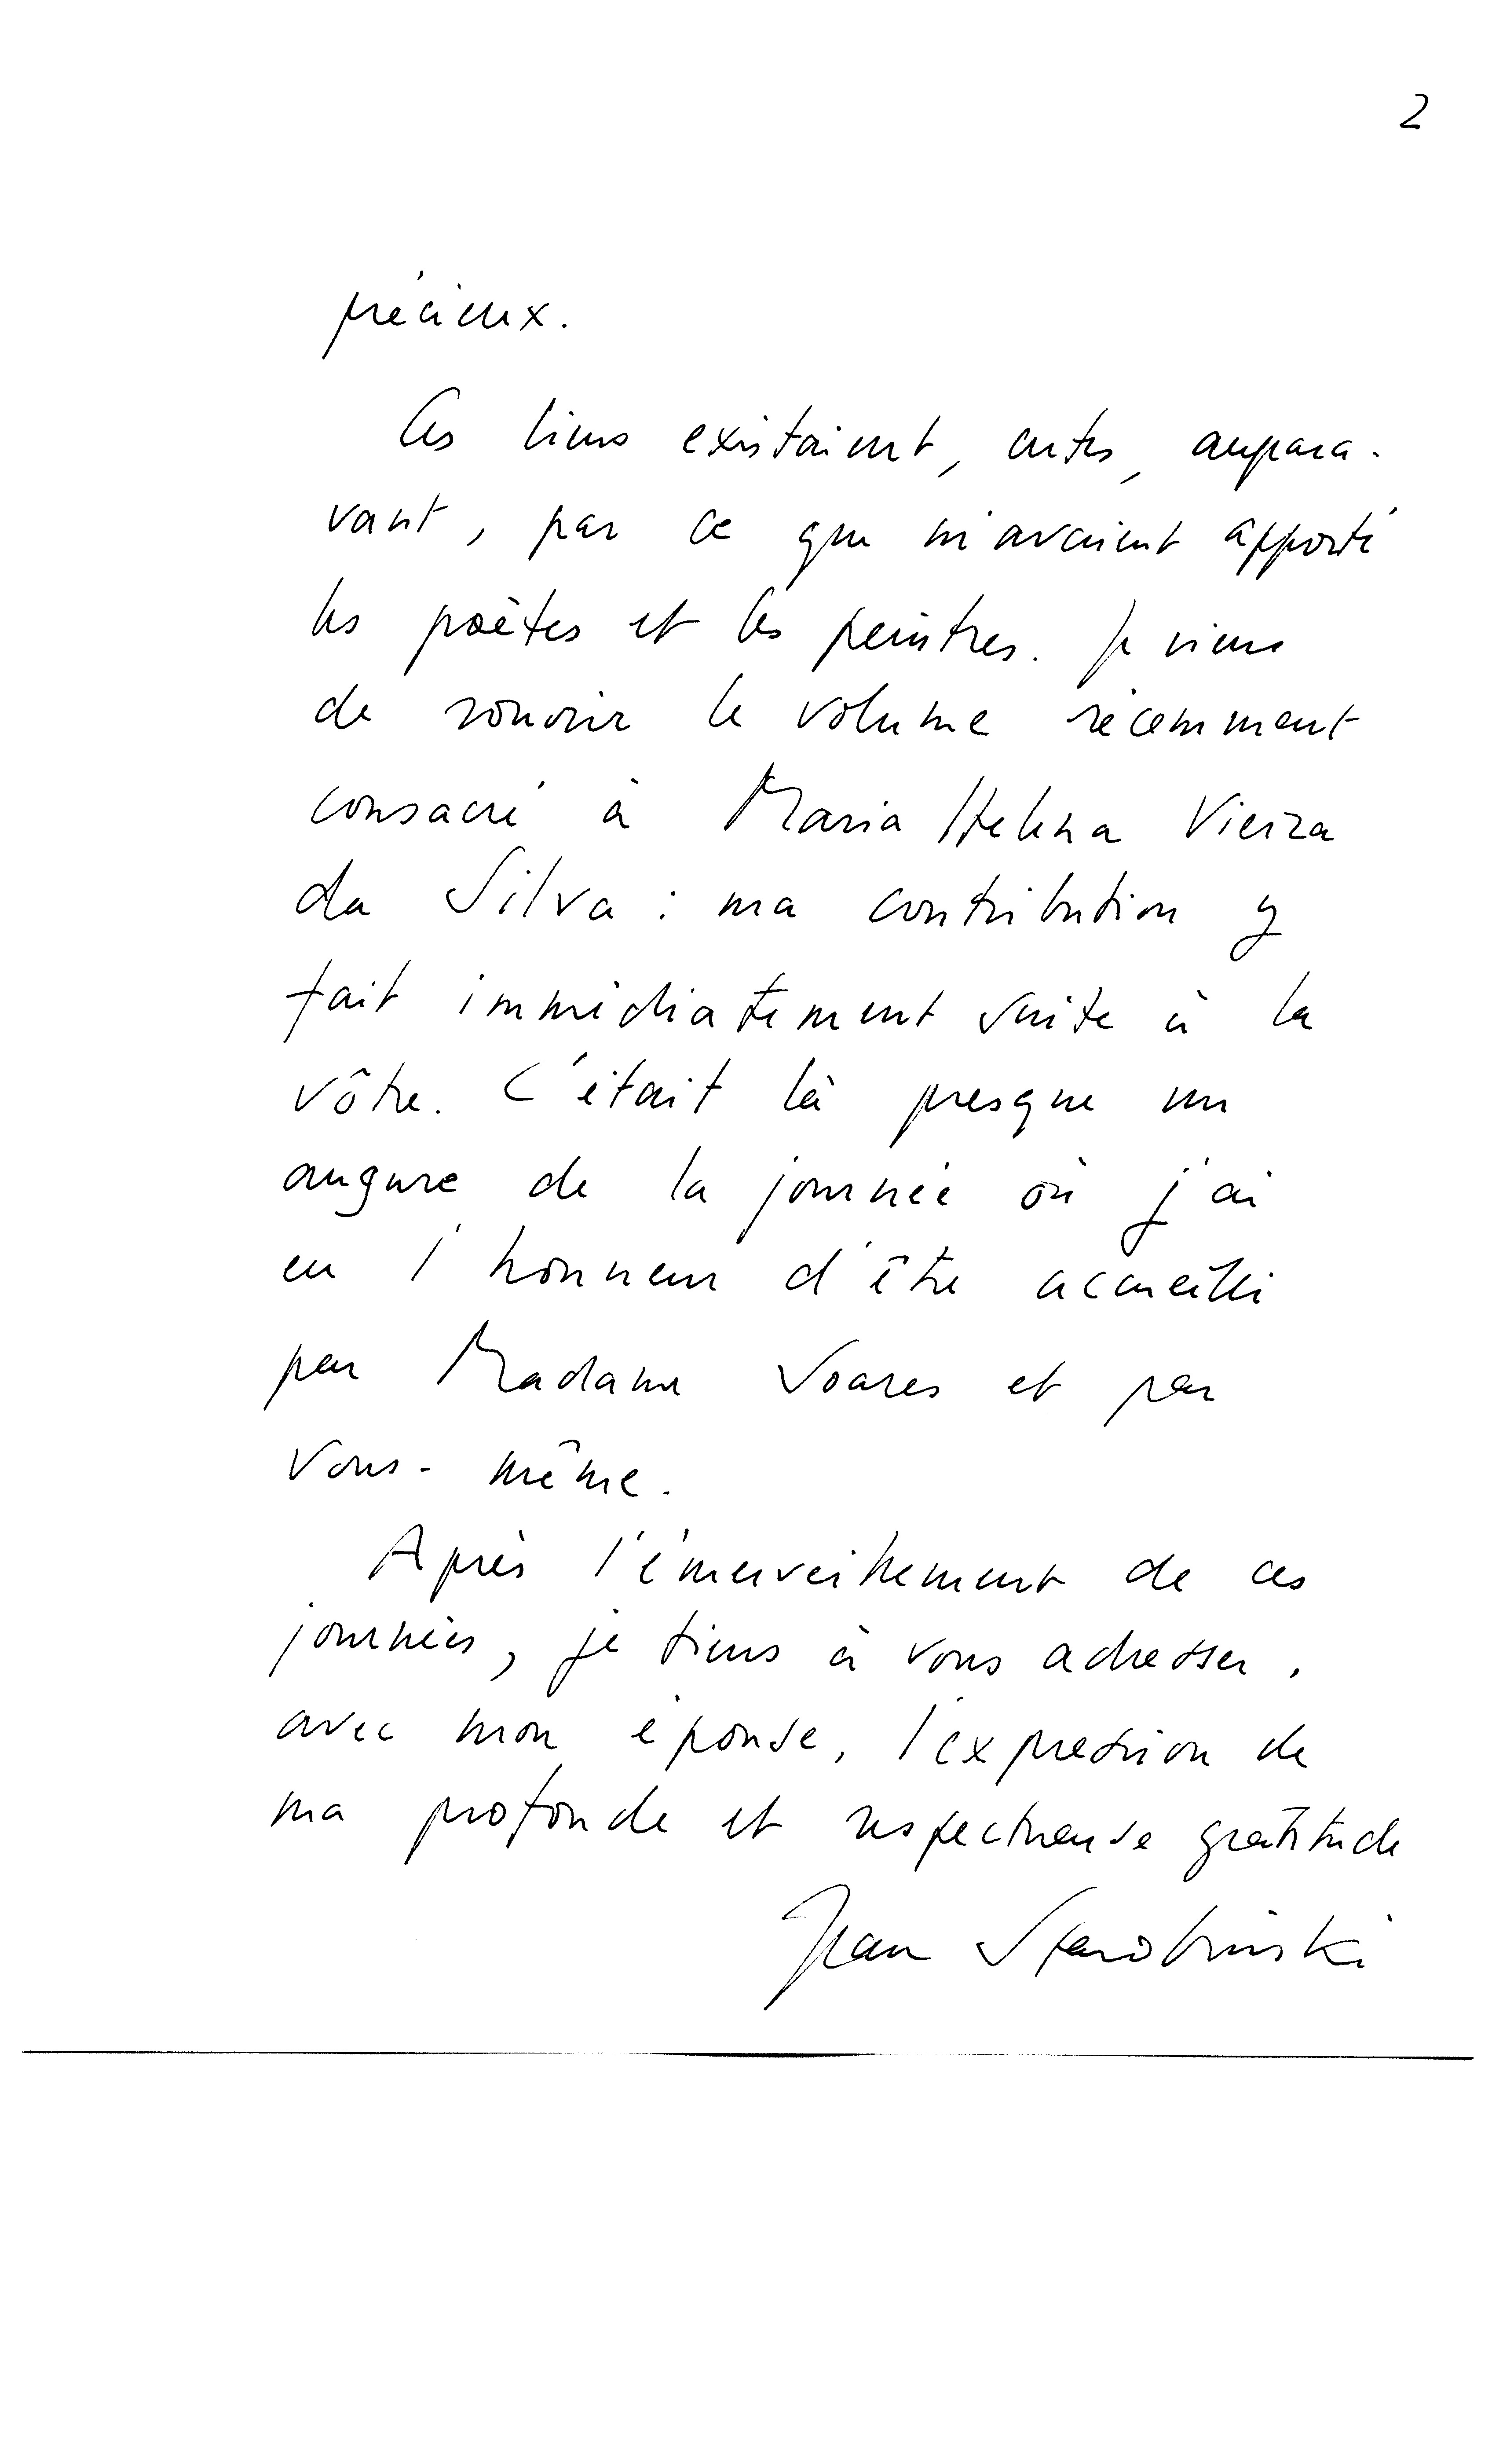 2
précieux.
Ces liens existaient, certes, aupara-
vant, par ce que m'avaient apporté
les poètes et les peintres. Je viens
de rouvrir le volume récemment
consacré à Maria Helena Vieira
da Silva : ma contribution y
fait immédiatement suite à la
vôtre. C'était là presque un
augure de la journée où j'ai
eu l'honneur d'être accueilli
par Madame Soares et par
vous-même.
Après l'émerveillement de ces
journées, je tiens à vous adresser,
avec mon épouse, l'expression de
ma profonde et respectueuse gratitude
Jean Starobinski